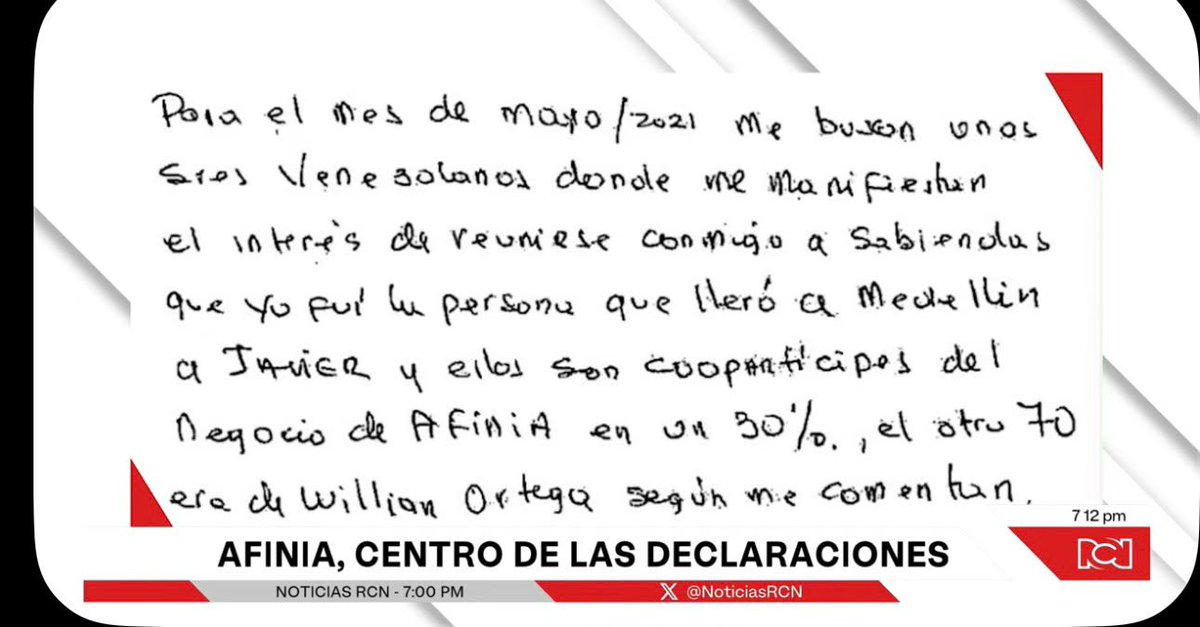 Para el mes de mayo/2021 me buscan unos
sres Venezolanos donde me manifiestan
el interés de reunirse conmigo a sabiendas
que yo fuí la persona que llevó a Medellin
a JAVIER y ellos son cooparticipes del
negocio de AFINIA en un 30%., el otro 70
era de Willian Ortega según me comentan.
7 12 pm
AFINIA, CENTRO DE LAS DECLARACIONES
RCN
NOTICIAS RCN - 7:00 PM
X @NoticiasRCN